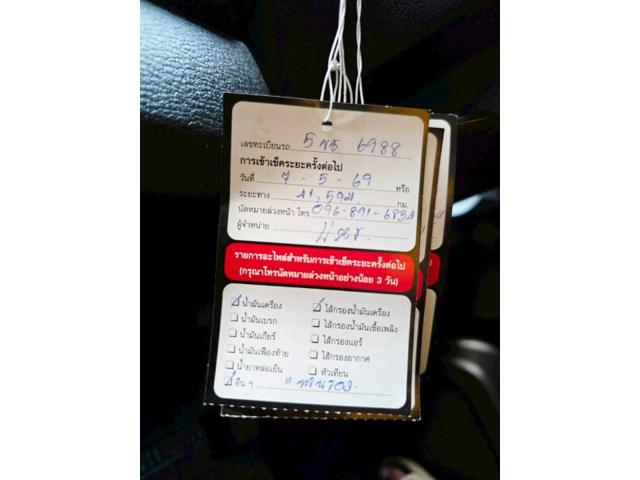 เลขทะเบียนรถ 5 ขธ 6988
การเข้าเช็คระยะครั้งต่อไป
วันที่ 7 - 5 - 69 หรือ
ระยะทาง กม.
นัดหมายล่วงหน้า โทร 096-891-6834
ผู้จำหน่าย
รายการอะไหล่สำหรับการเข้าเช็คระยะครั้งต่อไป
(กรุณาโทรนัดหมายล่วงหน้าอย่างน้อย 3 วัน)
น้ำมันเครื่อง ไส้กรองน้ำมันเครื่อง
น้ำมันเบรก ไส้กรองน้ำมันเชื้อเพลิง
น้ำมันเกียร์ ไส้กรองแอร์
น้ำมันเฟืองท้าย ไส้กรองอากาศ
น้ำยาหล่อเย็น หัวเทียน
อื่น ๆ